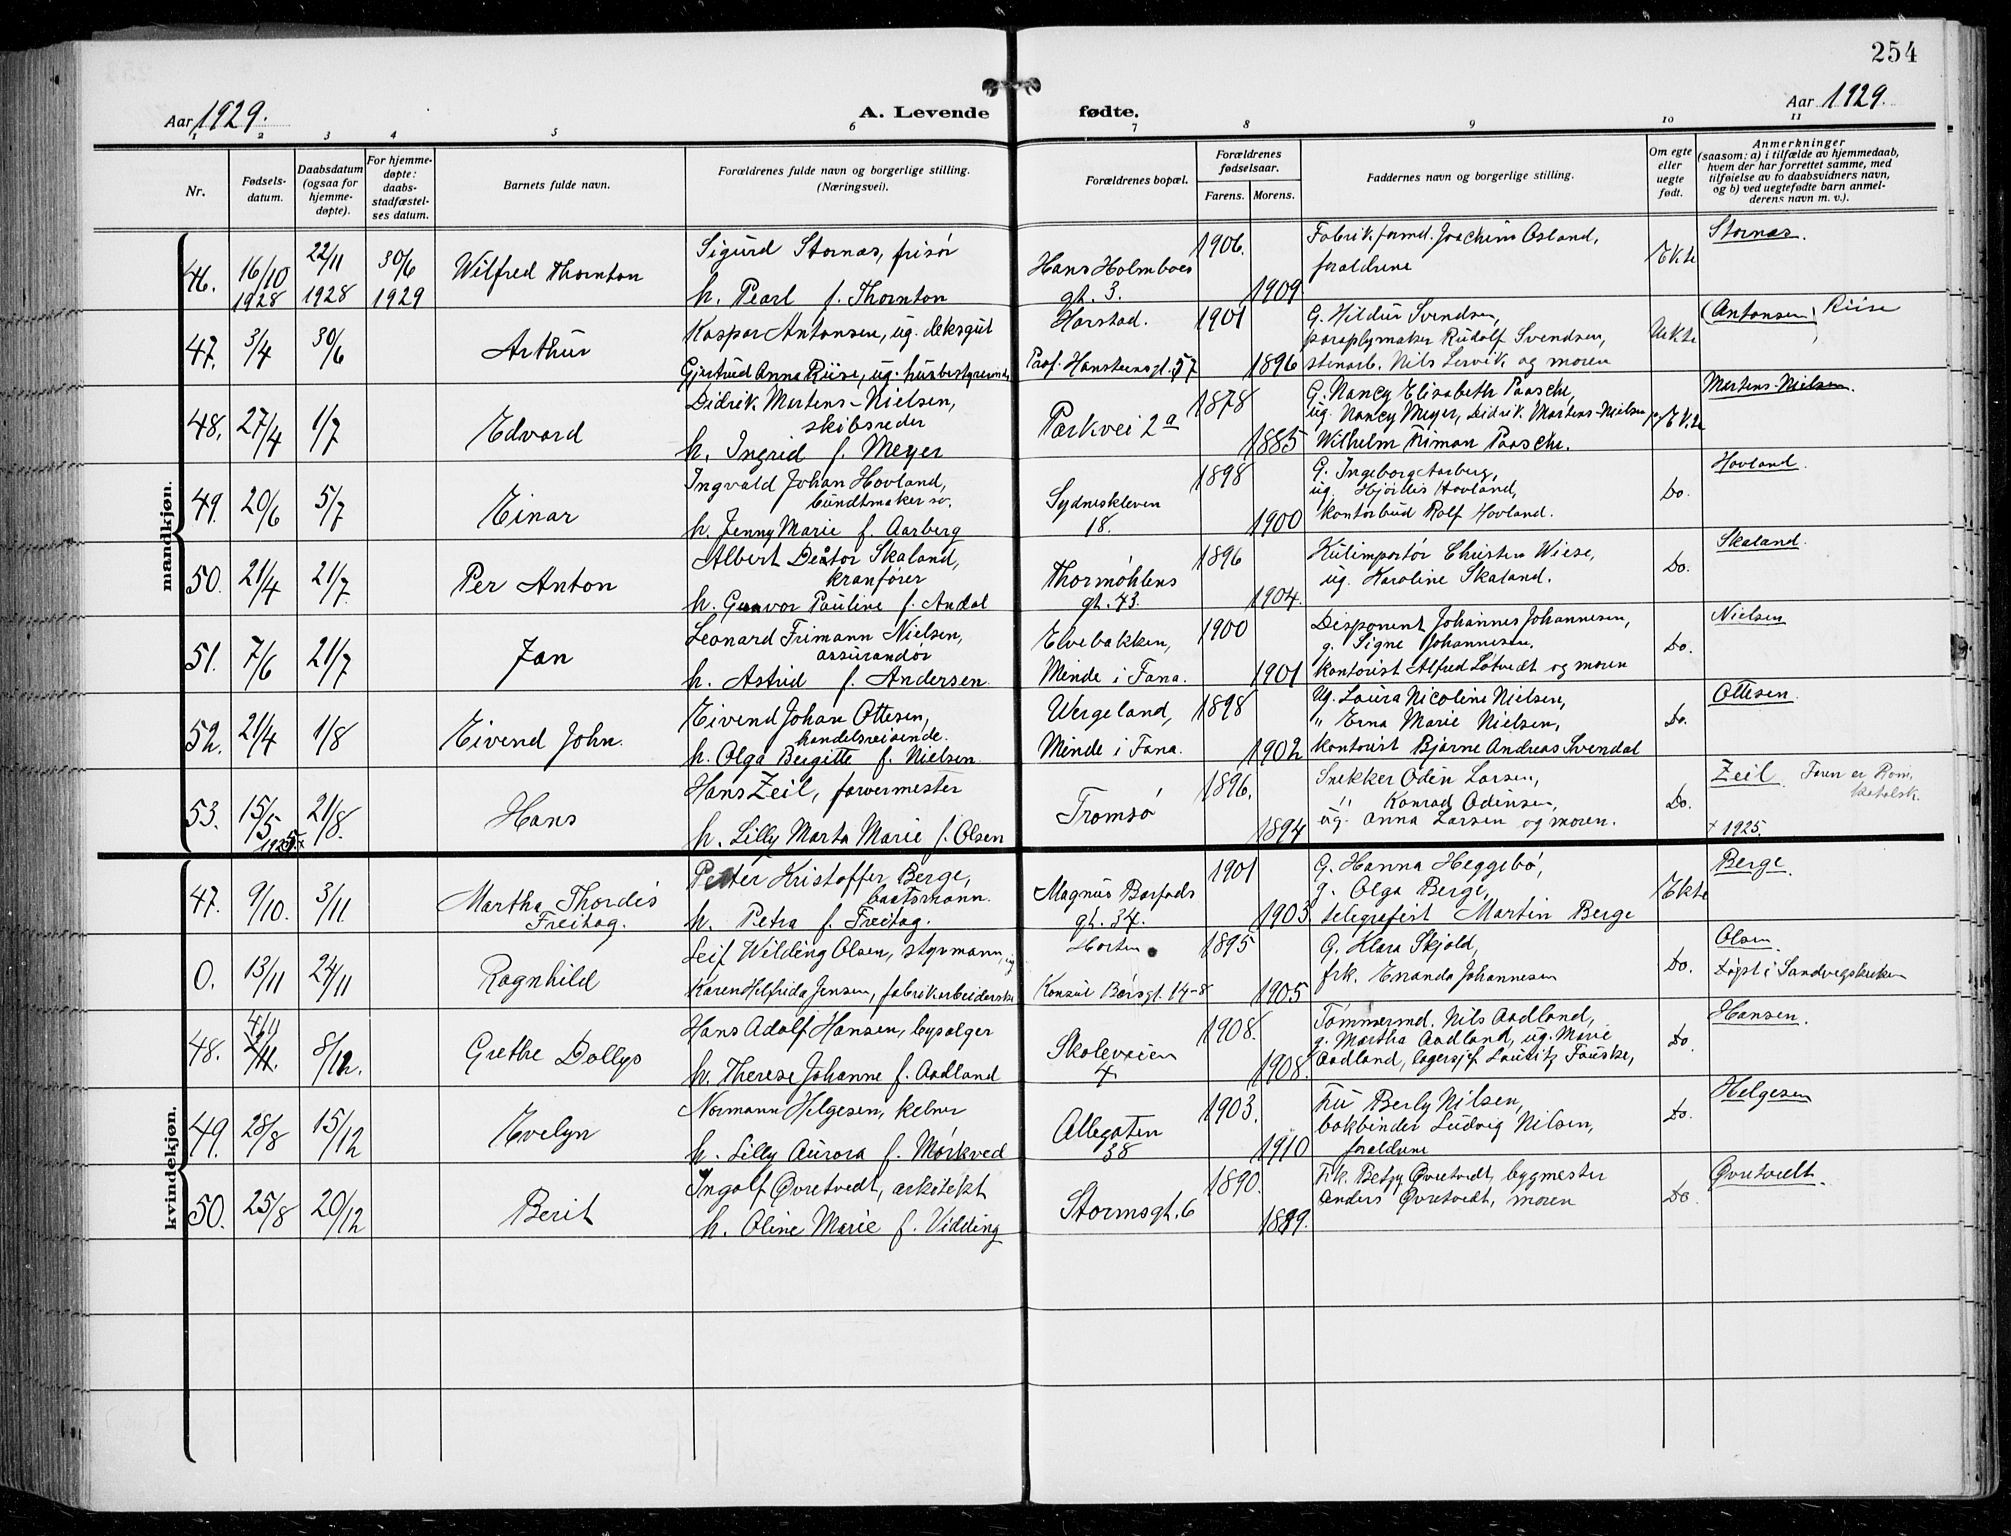 254
Aar 1929.
A. Levende fødte.
Aar 1929.
1 2 3 4 5 6 7 8 9 10 11
Nr.
Fødsels-
datum.
Daabsdatum
(ogsaa for
hjemme-
døpte).
For hjemme-
døpte:
daabs-
stadfæstel-
ses datum.
Barnets fulde navn.
Forældrenes fulde navn og borgerlige stilling.
(Næringsvei).
Forældrenes bopæl.
Forældrenes
fødselsaar.
Farens. Morens.
Faddernes navn og borgerlige stilling.
Om egte
eller
uegte
født.
Anmerkninger
(saasom: a) i tilfælde av hjemmedaab,
hvem der har forrettet samme, med
tilføielse av to daabsvidners navn,
og b) ved uegtefødte barn anmel-
derens navn m. v.).
mandkjøn.
46. 16/10 1928 22/11 1928 30/6 1929 Wilfred Thornton
Sigurd Stornas, frisør
h. Pearl f. Thornton
Hans Holmboes
gt. 3.
1906. 1909.
Fabrikformd. Joachim Osland,
foraldrene
Ekte
Stornas.
47. 3/4 30/6 Arthur
Kaspar Antonsen, ug. deksgut
Gjertrud Anna Riise, ug. husbestyrerinde
Harstad.
Prof. Hansteensgt. 57
1901 1896
G. Hildur Svendsen,
paraplymaker Rudolf Svendsen,
stenarb. Nils Lervik og moren
Uekte
(Antonsen) Riise
48. 27/4 1/7 Edvard
Didrik Martens-Nielsen,
skibsreder
h. Ingrid f. Meyer
Parkvei 2a
1878 1885
G. Nancy Elisabeth Paasche,
ug. Nancy Meyer, Didrik Martens-Nielsen jr.
Wilhelm Riman Paasche.
Ekte
Martens-Nielsen.
49. 20/6 5/7 Einar
Ingvald Johan Hovland,
bundtmaker sv.
h. Jenny Marie f. Aarberg
Sydneskleven
18.
1898 1900
G. Ingeborg Aarberg,
ug. Hjørdis Hovland,
kontorbud Rolf Hovland.
Do.
Hovland.
50. 21/4 21/7 Per Anton
Albert Deator Skaland,
kranfører
h. Gunvor Pauline f. Andal
Thormøhlens
gt. 43.
1896 1904.
Kulimportør Christen Wiese,
ug. Karoline Skaland.
Do.
Skaland.
51. 7/6 21/7 Jan
Leonard Frimann Nielsen,
assurandør
h. Astrid f. Andersen.
Elvebakken,
Minde i Fana.
1900 1901
Disponent Johannes Johannesen,
g. Signe Johannesen,
kontorist Alfred Løtvedt og moren
Do.
Nielsen
52. 21/4 1/8 Eivend John.
Eivend Johan Ottesen,
handelsreisende.
h. Olga Bergitte f. Nielsen.
Wergeland,
Minde i Fana.
1898 1902
Ug. Laura Nicoline Nielsen,
" Erna Marie Nielsen,
kontorist Bjarne Andreas Svendal
Do.
Ottesen.
53. 15/5 1925 x 21/8. Hans
Hans Zeil, farvermester
h. Lilly Marta Marie f. Olsen
Tromsø
1896. 1894
Snekker Odin Larsen,
" Konrad Odinsen,
ug. Anna Larsen og moren.
Do.
Zeil. Faren er Rom.
katolsk.
x 1925.
kvindekjøn.
47. 9/10. 3/11 Martha Thordis
Freitag.
Petter Kristoffer Berge,
baatsmann.
h. Petra f. Freitag.
Magnus Barfods
gt. 34.
1901 1903
G. Hanna Heggebø,
g. Olga Berge,
telegrafist Martin Berge
Ekte
Berge.
0. 13/11 24/11 Ragnhild
Leif Wilding Olsen, styrmann, ug
Karen Helfrida Jensen, fabrikarbeiderske
Horten
Konsul Børsgt. 14-8
1895 1905
G. Klara Skjold,
frk. Enanda Johannesen
Do.
Olsen
Døpt i Sandvegskirken
48. 4/11 8/12. Grethe Dollys
Hans Adolf Hansen, bysælger
h. Therese Johanne f. Aadland
Skoleveien
4
1908. 1908.
Tømmermd. Nils Aadland,
g. Martha Aadland, ug. Marie
Aadland, lagersjef Lauritz Fauske,
Do.
Hansen.
49. 28/8 15/12 Evelyn
Normann Helgesen, kelner
h. Lilly Aurora f. Mørkved
Allegaten
38
1903. 1910
Fru Berly Nilsen,
bokbinder Ludvig Nilsen,
foraldrene
Do.
Helgesen
50. 25/8 20/12 Berit
Ingolf Øvretvedt, arkitekt
h. Oline Marie f. Vidding
Stormsgt. 6
1890. 1899.
Frk. Betzy Øvretvedt, bygmester
Anders Øvretvedt, moren
Do
Øvretvedt.